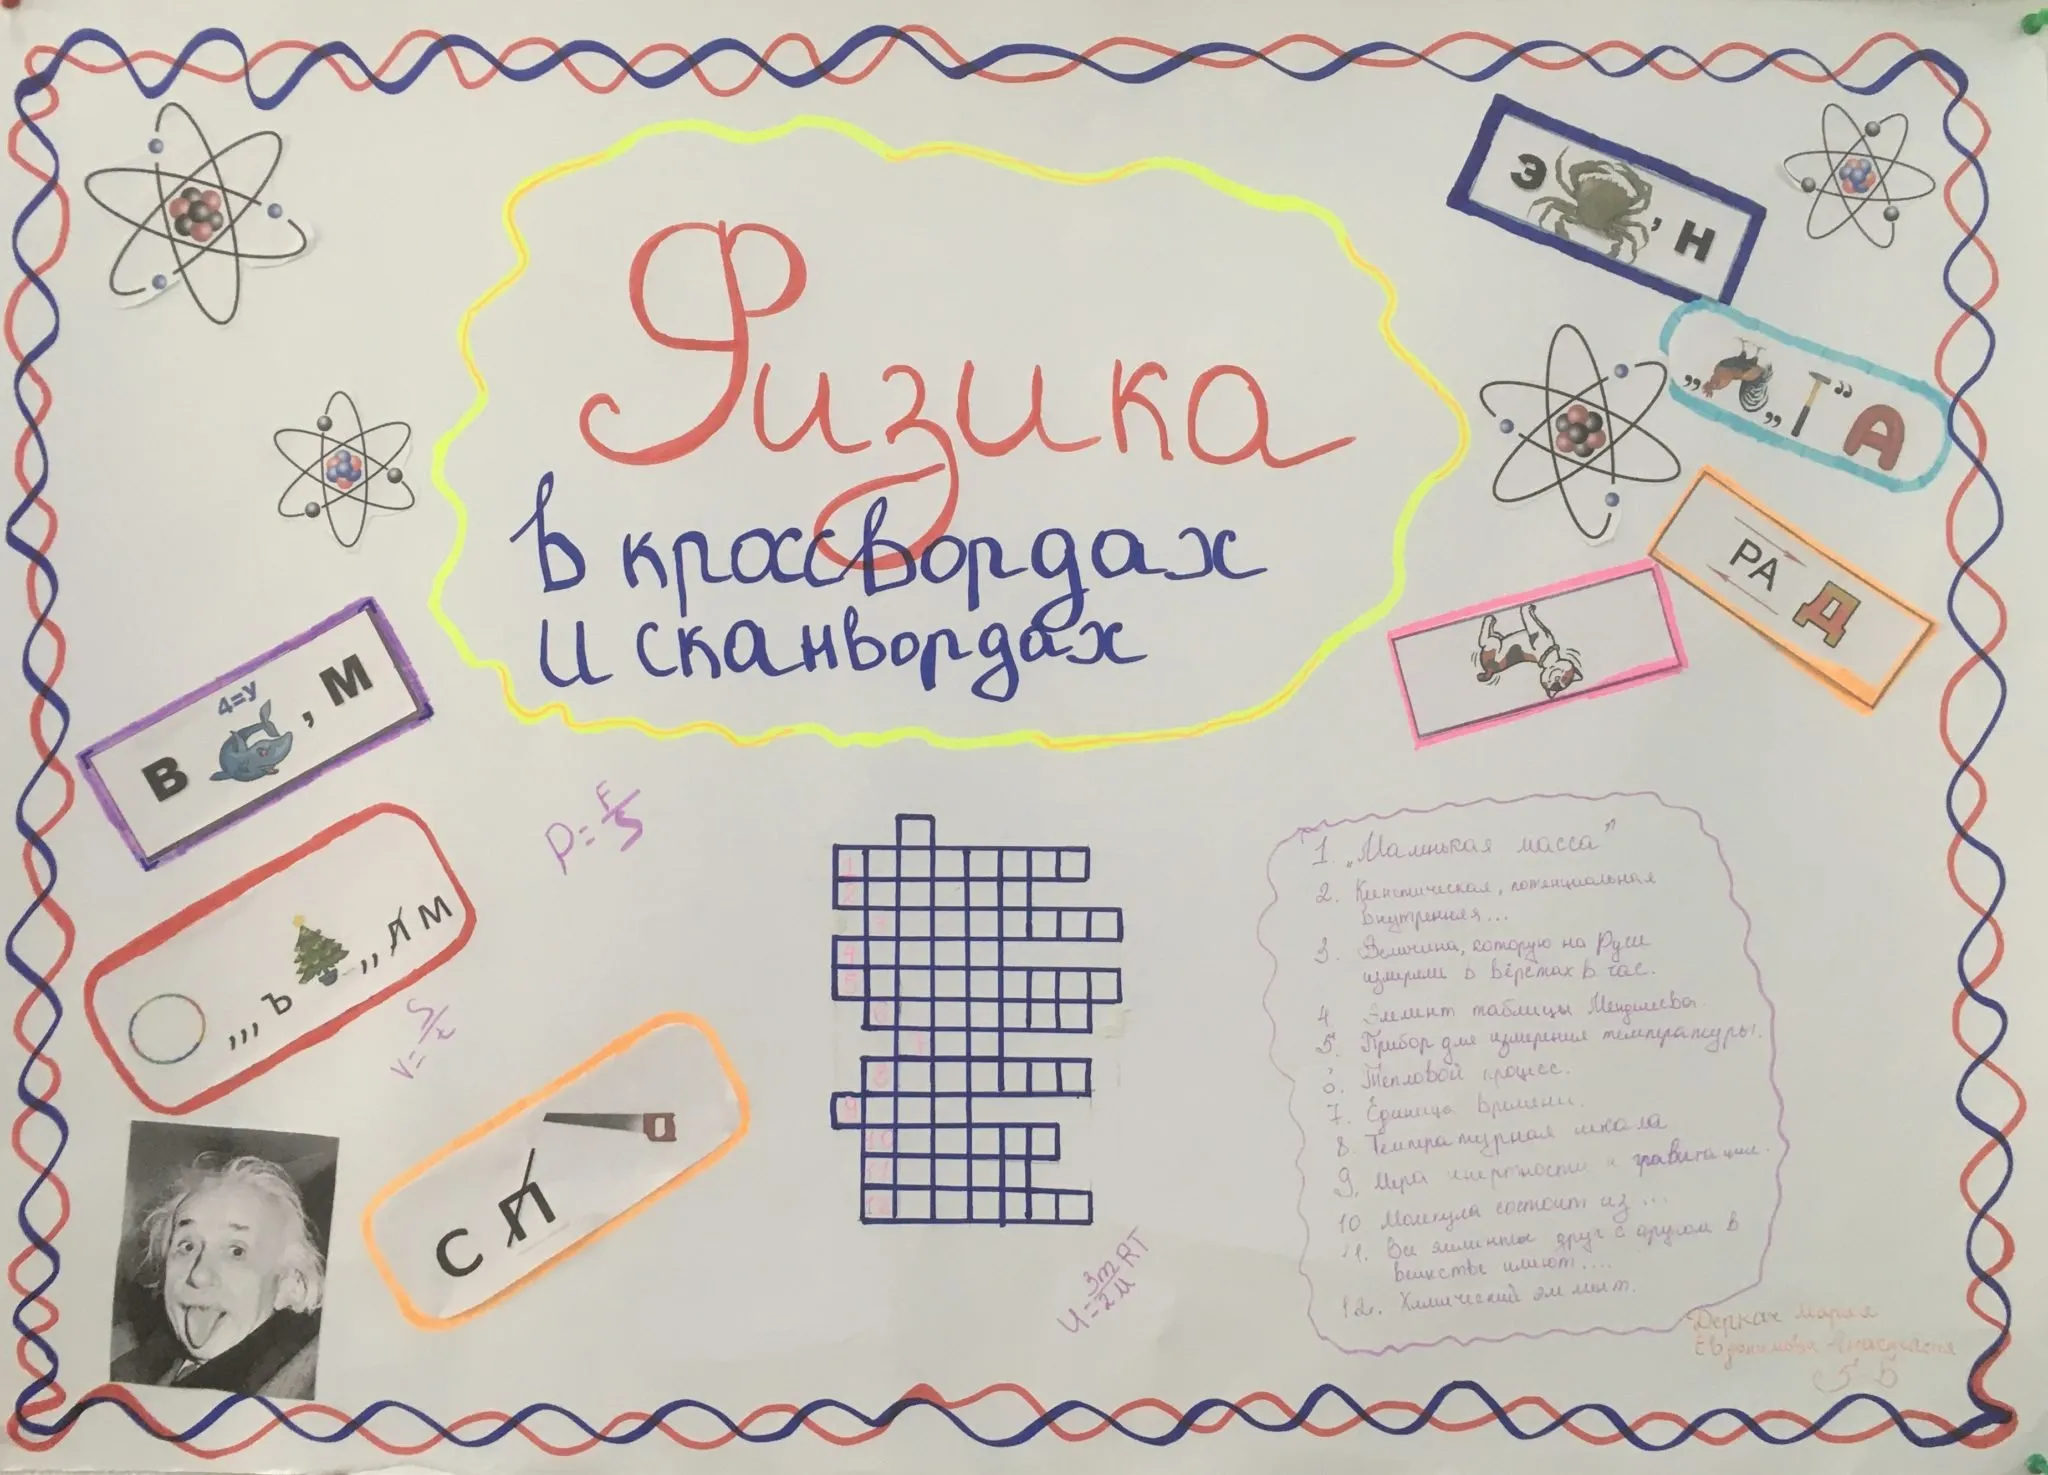 Физика
в кросвордах
и сканвордах
Э , Н
„ „ “ А
РА Д
В 4=У , М
,,, Ъ ,, Л М
С П
P=F/S
V=S/t
U=3m/2M RT
1
2
3
4
5
6
7
8
9
10
11
12
1. „Маленькая масса"
2. Кинетическая, потенциальная
внутренняя...
3. Величина, которую на Руси
измеряли в вёрстах в час.
4. Элемент таблицы Менделеева.
5. Прибор для измерения температуры.
6. Тепловой процесс.
7. Единица времени.
8. Температурная шкала
9. Мера инертности и гравитации.
10 Молекула состоит из ...
11. Все элементы друг с другом в
веществе имеют....
12. Химический элемент.
Деркач Мария
Евдокимова Анастасия
5-Б